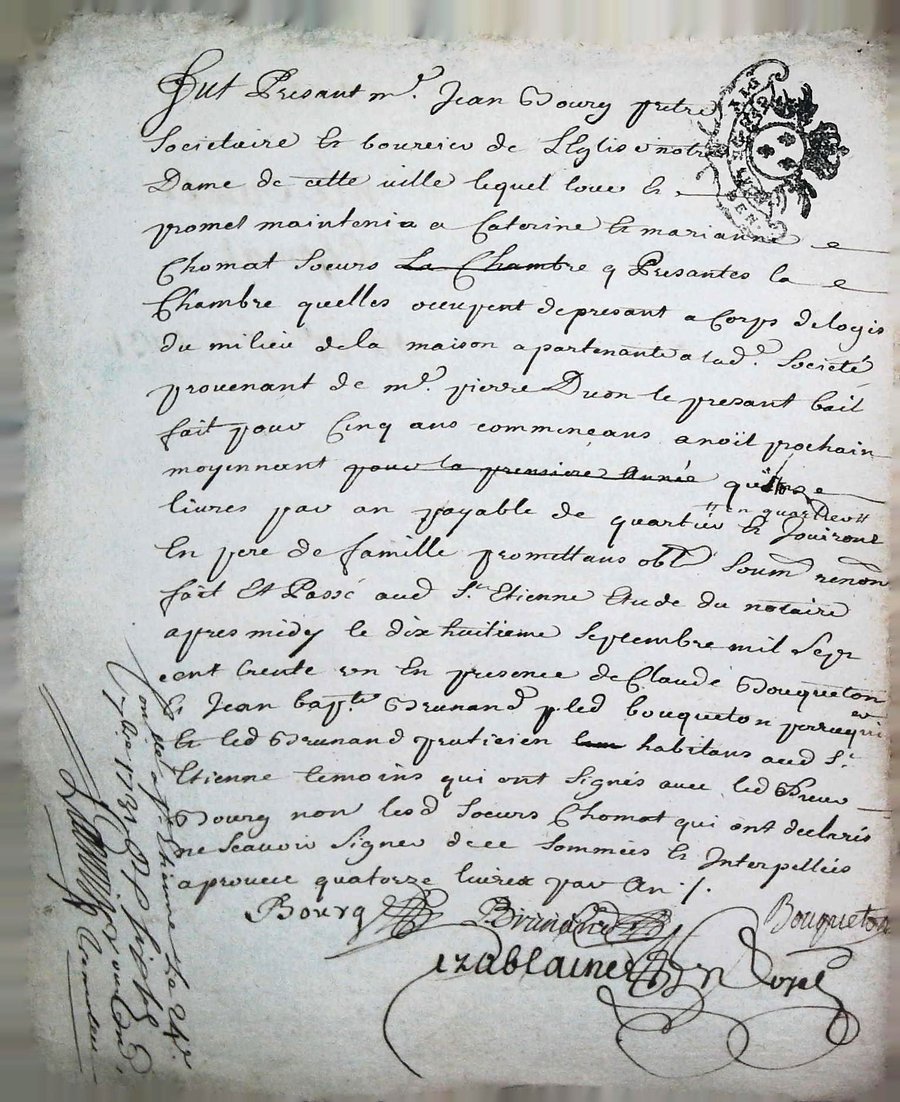 Fut Presant mr. Jean Bourg pretre
Societaire et boursier de Leglise notre
Dame de cette ville lequel loue et
promet maintenir a Caterine et marianne
Chomat soeurs La Chambre q Presantes la
Chambre quelles occupent depresant a Corps delogis
du milieu dela maison apartenante a lad. Societé
provenant de mr. pierre Duon le presant bail
fait pour Cinq ans commençans a noil prochain
moyennant pour la premiere Année
livres par an payable de quartier en quartier et Jouiront
En pere de famille promettans obl. soum. renon
fait Et Passé aud St. Etienne Etude du notaire
apres midy le dix huitieme Septembre mil Sept
cent trente un en presence de Claude Bouqueton
et Jean bapte. Brunand led bouqueton perruquier
et led Brunand praticien habitans aud St.
Etienne temoins qui ont signés avec led Sieur
Bourg non lesd Soeurs Chomat qui ont declarés
ne Scavoir Signer de ce Sommées et Interpellées
aprouvé quatorze livres par An ./.
Bourg Brunand Bouqueton
St Etienne Le 24e.
7bre 1731